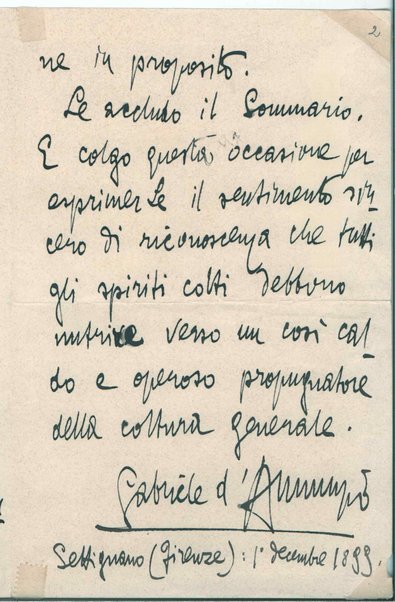 2
ne in proposito.
Le accludo il Sommario.
E colgo questa occasione per
esprimerLe il sentimento sin
cero di riconoscenza che tutti
gli spiriti colti debbono
nutrire verso un così cal
do e operoso propugnatore
della coltura generale.
Gabriele d'Annunzio
Settignano (Firenze): 1° decembre 1899.